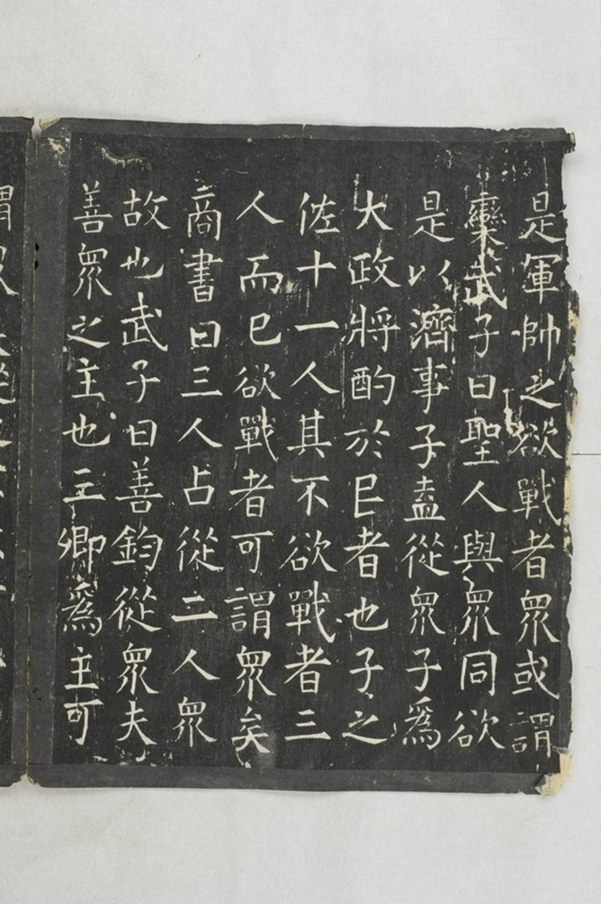 是軍帥之欲戰者眾或謂
欒武子曰聖人與眾同欲
是以濟事子盍從眾子為
大政將酌於民者也子之
佐十一人其不欲戰者三
人而已欲戰者可謂眾矣
商書曰三人占從二人眾
故也武子曰善鈞從眾夫
善眾之主也三卿為主可
謂眾